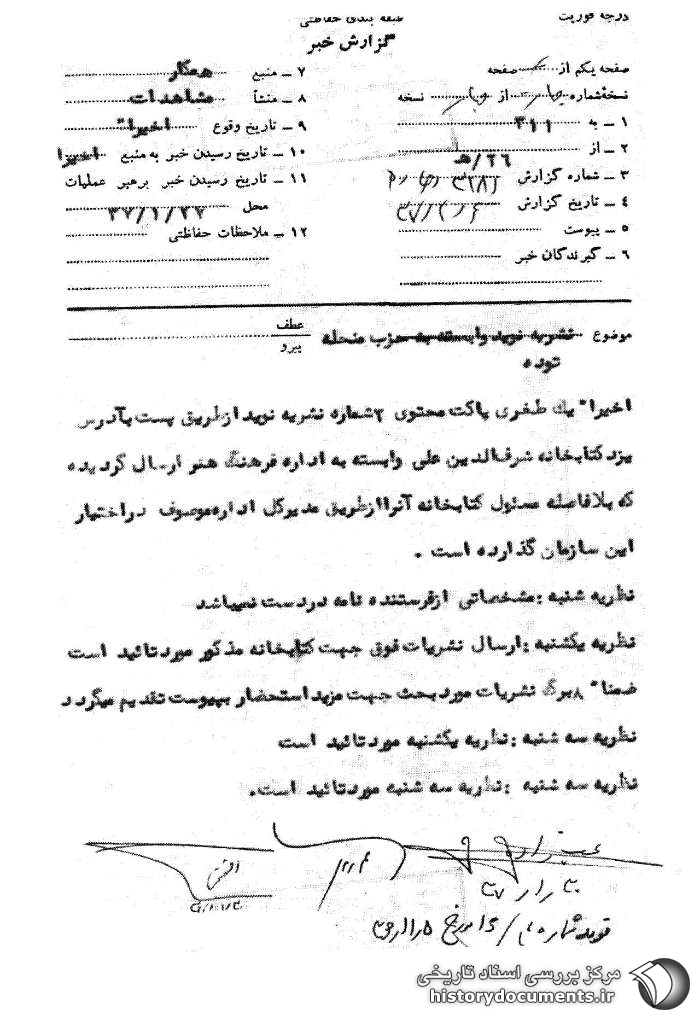 درجه فوریت
طبقه بندی حفاظتی
گزارش خبر
صفحه یکم از صفحه
نسخه شماره از نسخه
۱ ــ به ۳۱۱
۲ ــ از ۲۶/هـ
۳ ــ شماره گزارش
۴ ــ تاریخ گزارش
۵ ــ پیوست
۶ ــ گیرندگان خبر
۷ ــ منبع همکار
۸ ــ منشأ مشاهدات
۹ ــ تاریخ وقوع اخیرا"
۱۰ ــ تاریخ رسیدن خبر به منبع اخیرا
۱۱ ــ تاریخ رسیدن خبر برهبر عملیات
محل ۳۷/۱/۲۷
۱۲ ــ ملاحظات حفاظتی
موضوع نشریه نوید وابسته به حزب منحله
توده
عطف
پیرو
اخیرا" یك طغری پاکت محتوی ۲شماره نشریه نوید ازطریق پست بآدرس
یزد کتابخانه شرف‌الدین علی وابسته به اداره فرهنگ هنر ارسال گردیده
که بلافاصله مسئول کتابخانه آنراازطریق مدیرکل اداره‌موصوف دراختیار
این سازمان گذارده است .
نظریه شنبه :مشخصاتی ازفرستنده نامه دردست نمیباشد
نظریه یکشنبه :ارسال نشریات فوق جهت کتابخانه مذکور موردتائید است
ضمنا" ۸برگ نشریات مورد بحث جهت مزید استحضار بپیوست تقدیم میگردد
نظریه سه شنبه :نظریه یکشنبه موردتائید است
نظریه سه شنبه :نظریه سه شنبه موردتائید است.
مرکز بررسی اسناد تاریخی
historydocuments.ir